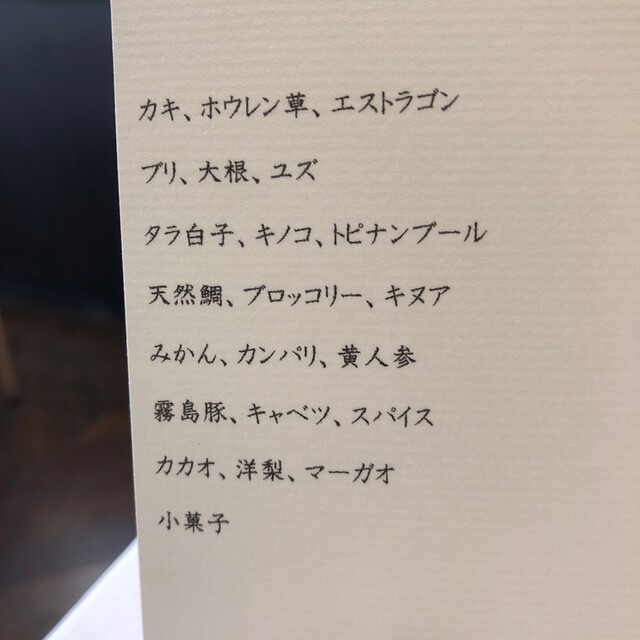 カキ、ホウレン草、エストラゴン
ブリ、大根、ユズ
タラ白子、キノコ、トピナンブール
天然鯛、ブロッコリー、キヌア
みかん、カンパリ、黄人参
霧島豚、キャベツ、スパイス
カカオ、洋梨、マーガオ
小菓子